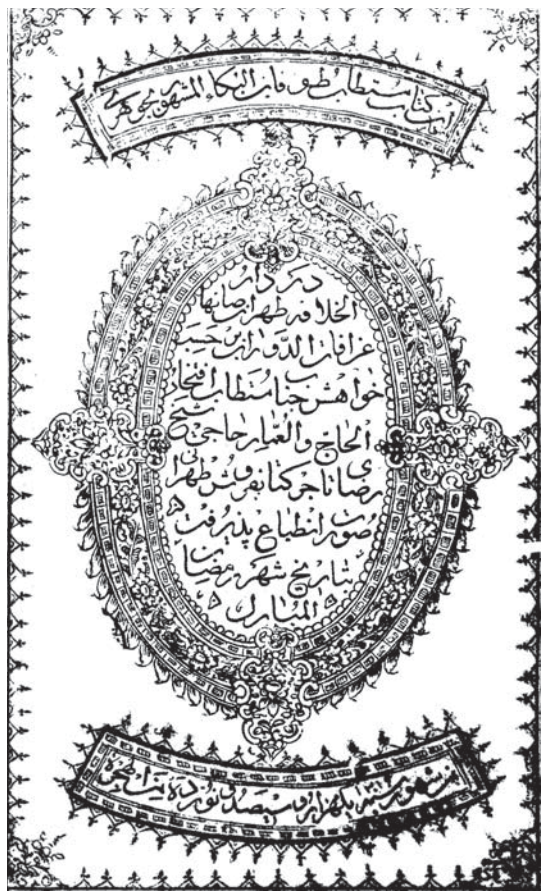 این کتاب مستطاب طوفان البکاء المشهور بجوهری
در دار
الخلافه طهران صانها
عن افات الدوران بر حسب
خواهش جناب مستطاب افتخار
الحاج والعمار حاجی شیخ
رضای تاجر کتابفروش طهرانی
صورت انطباع پذیرفت
بتاریخ شهر رمضان
المبارک
من شهور سنه یکهزار و سیصد و نوزده من الهجرة